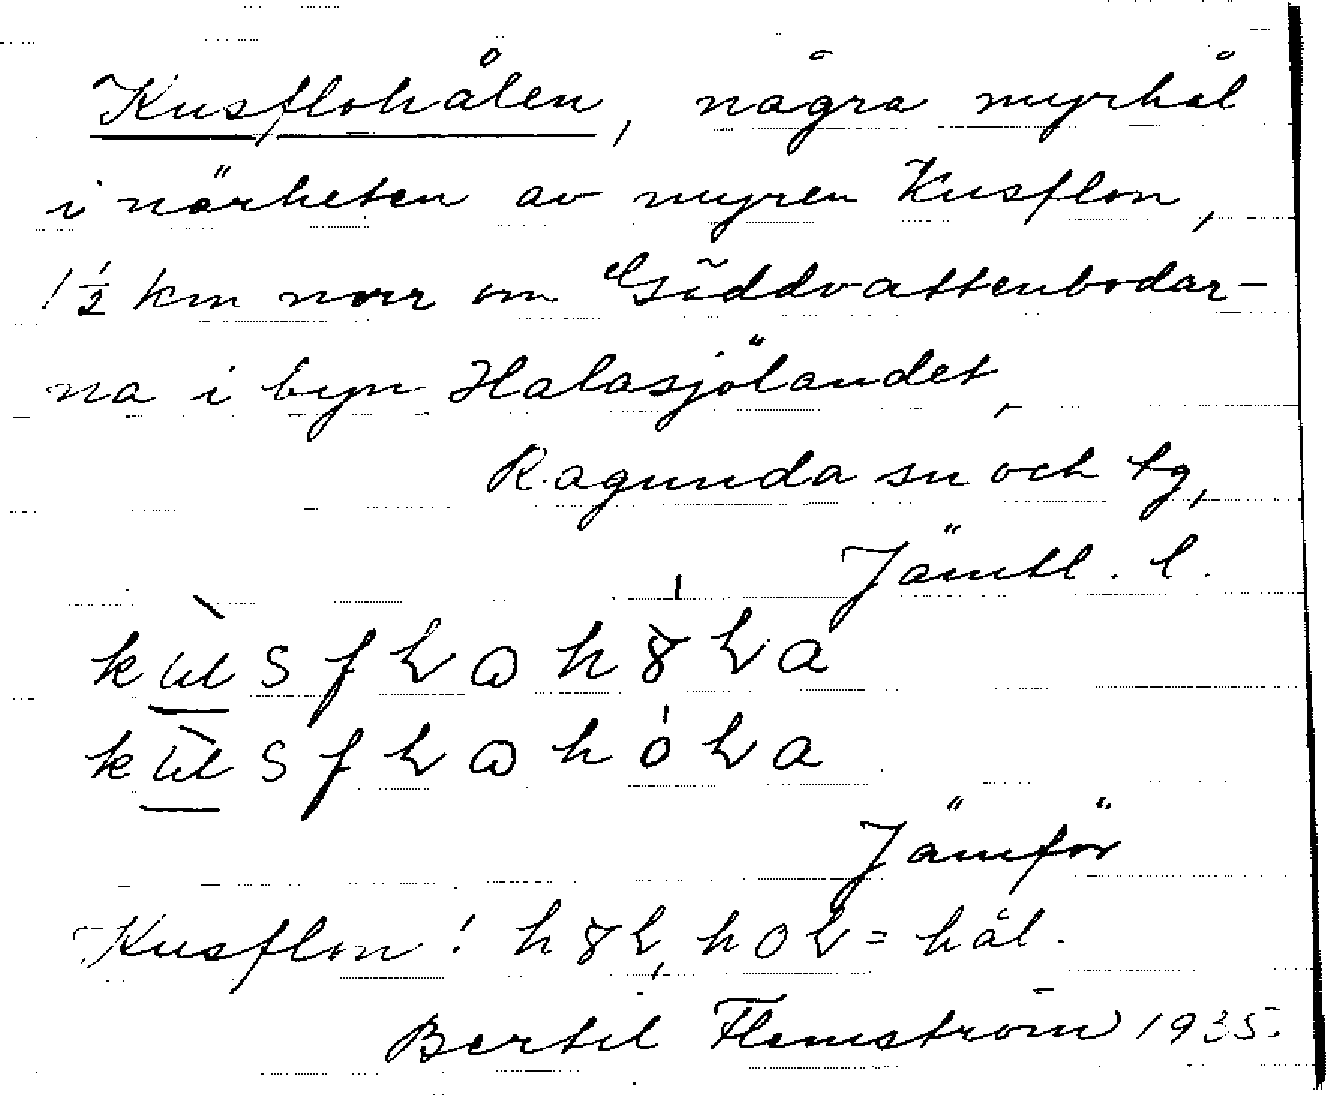 Kusflohålen, några myrhål
i närheten av myren Kusflon,
1½ km norr om Gäddvattenbodar-
na i byn Halasjölandet,
Ragunda sn och tg,
Jämtl. l.
Jämför
Kusflon! = hål.
Bertil Flemström 1935.